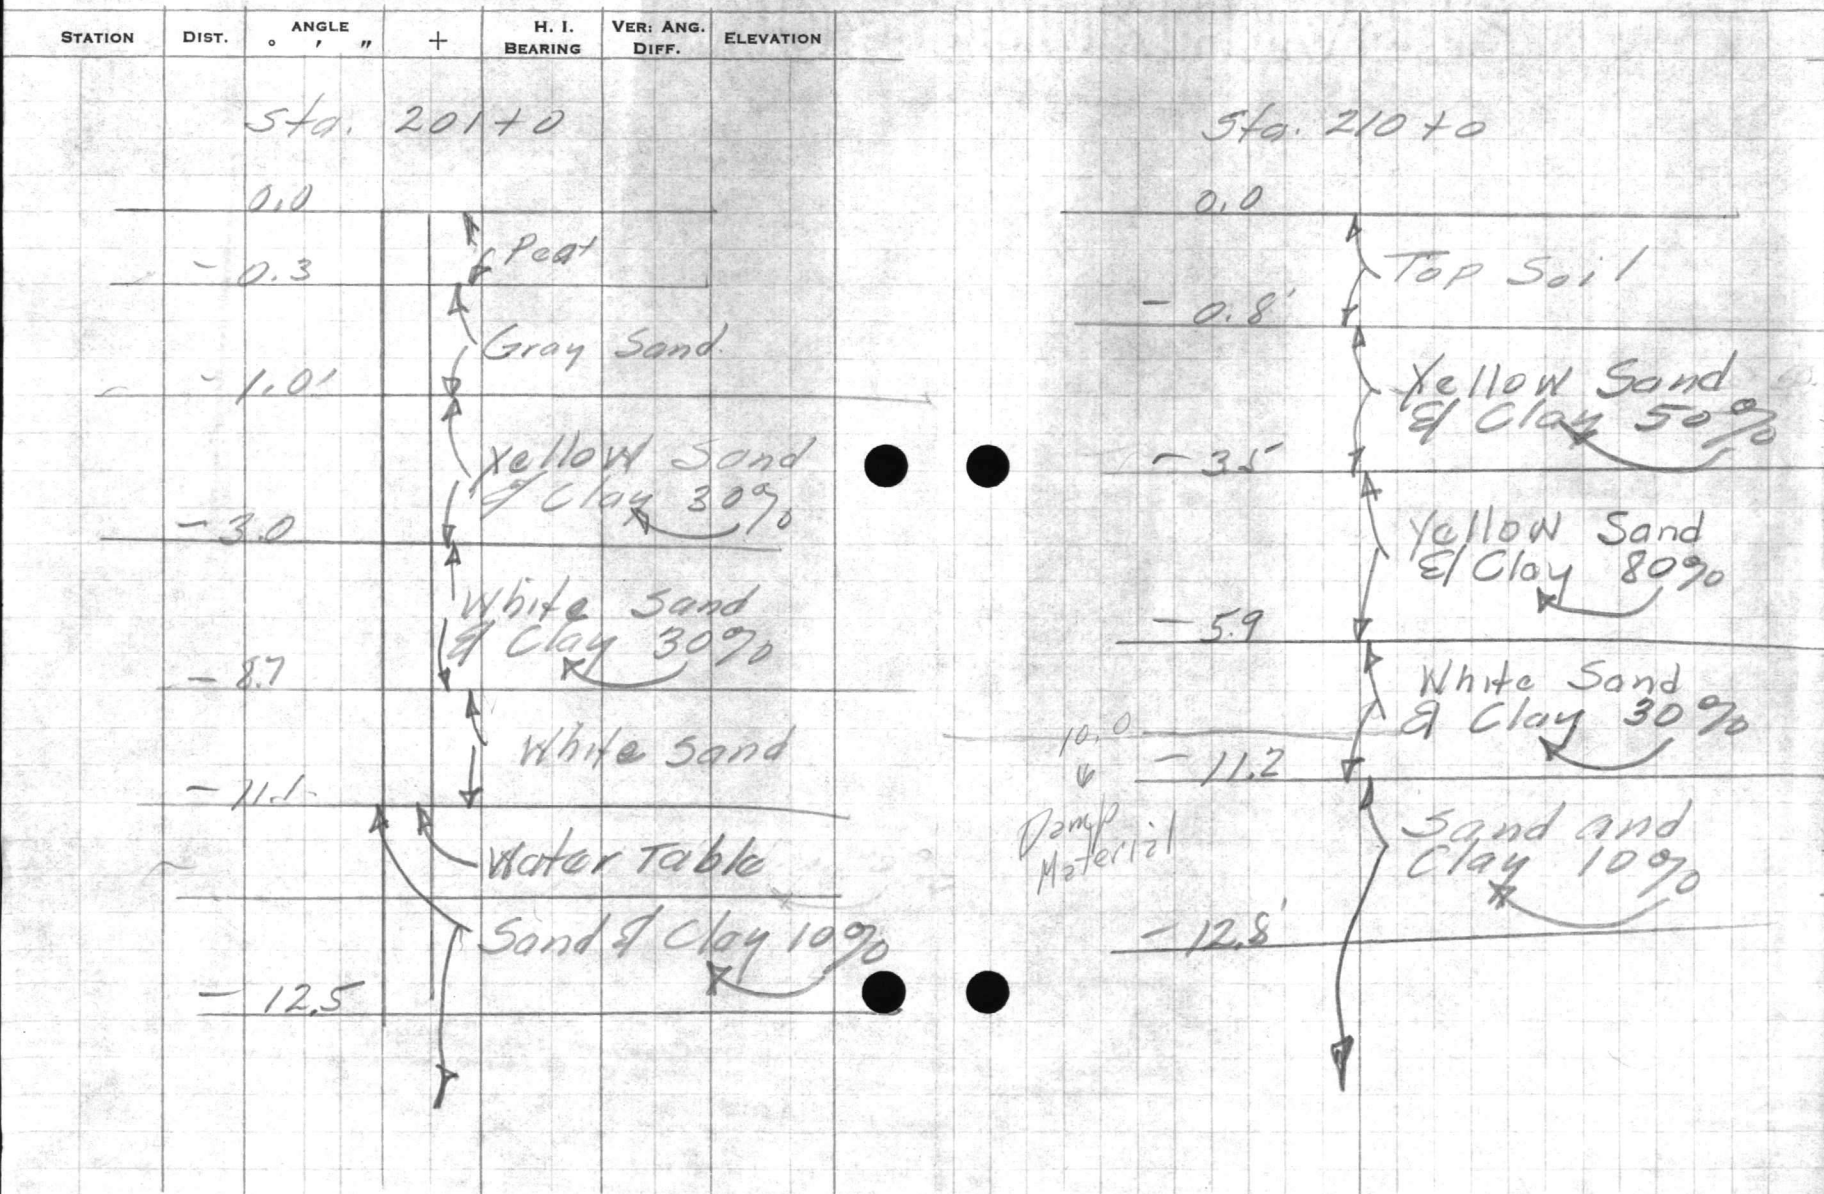 STATION DIST. ANGLE ° ' " + H. I. BEARING VER: ANG. DIFF. ELEVATION
Sta. 201+0
0.0
Peat
- 0.3
Gray Sand
- 1.0'
Yellow Sand
& Clay 30%
- 3.0
White Sand
& Clay 30%
- 8.7
White Sand
- 11.1
Water Table
Sand & Clay 10%
- 12.5
Sta. 210+0
0.0
Top Soil
- 0.8'
Yellow Sand
& Clay 50%
- 3.5
Yellow Sand
& Clay 80%
- 5.9
White Sand
& Clay 30%
10.0
- 11.2
Damp
Material
Sand and
Clay 10%
- 12.8'